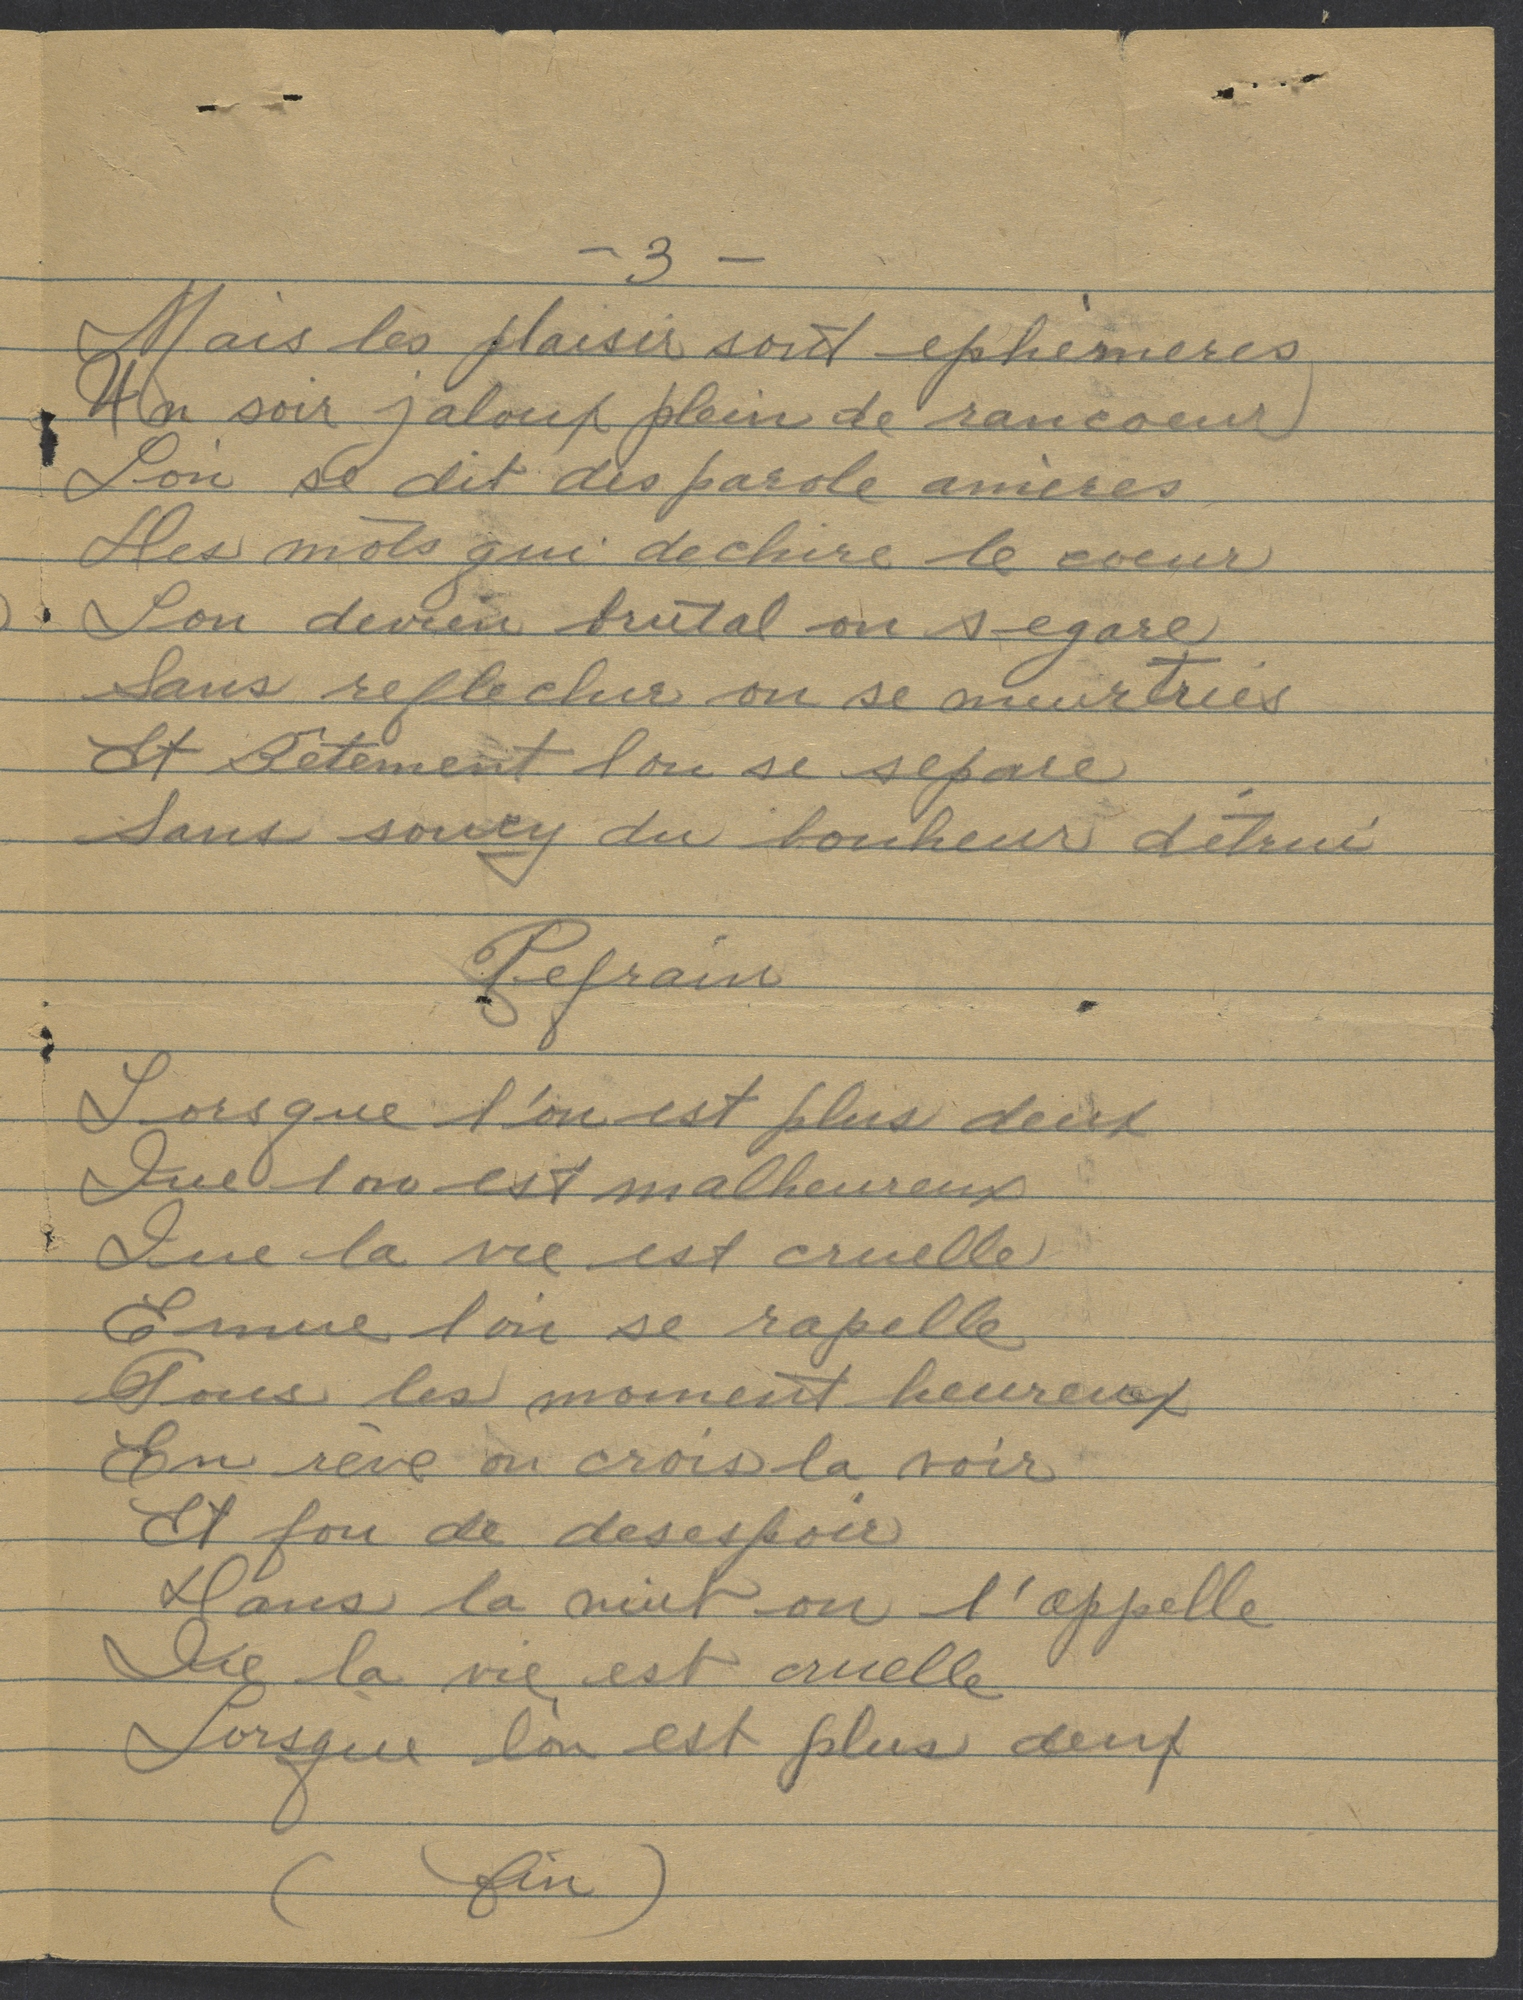 - 3 -
Mais les plaisir sont ephèmeres
Un soir jaloux plein de rancoeur
L'on se dit des parole amères
Des mots qui dechire le coeur
L'on devien brutal on s egare
Sans reflechir on se meurtries
Et Bêtement l'on se separe
Sans soucy du bonheur détrui
Refrain
Lorsque l'on est plus deux
Que l on est malheureux
Que la vie est cruelle
Emue l'on se rapelle
Tous les moment heureux
En rêve on crois la voir
Et fou de desespoir
Dans la nuit on l'appelle
Que la vie est cruelle
Lorsque l'on est plus deux
( fin )